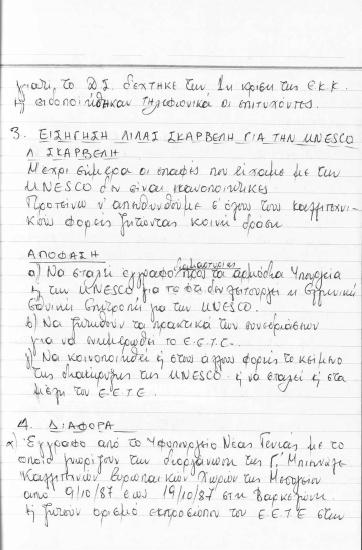 γιατί το Δ.Σ. δέχτηκε την 1η κρίση της Ε.Κ.Κ.
ειδοποιήθηκαν τηλεφωνικά οι επιτυχόντες.
3. ΕΙΣΗΓΗΣΗ ΛΙΛΑΣ ΣΚΑΡΒΕΛΗ ΓΙΑ ΤΗΝ UNESCO
Λ. ΣΚΑΡΒΕΛΗ
Μέχρι σήμερα οι επαφές που είχαμε με την
UNESCO δεν είναι ικανοποιητικές
Προτείνω ν' απευθυνθούμε σ' όλους τους καλλιτεχνι-
κούς φορείς ζητώντας κοινή δράση
ΑΠΟΦΑΣΗ
διαμαρτυρίας
α) Να σταλεί έγγραφο προς τα αρμόδια Υπουργεία
και την UNESCO για το ότι δεν λειτουργεί η Ελληνική
Εθνική Επιτροπή για την UNESCO.
β) Να ζητηθούν τα πρακτικά των συνεδριάσεων
για να ενημερωθεί το Ε.Ε.Τ.Ε.
γ) Να κοινοποιηθεί ή στους άλλους φορείς το κείμενο
της διακήρυξης της UNESCO ή να σταλεί ή στα
μέλη του Ε.Ε.Τ.Ε.
4. ΔΙΑΦΟΡΑ
α) Έγγραφο από το Υφυπουργείο Νέας Γενιάς με το
οποίο γνωρίζουν την διοργάνωση της Γ' Μπιεννάλε
Καλλιτεχνών Ευρωπαϊκών Χωρών της Μεσογείου
από 9/10/87 έως 19/10/87 στη Βαρκελώνη
ή ζητούν ορισμό εκπροσώπου του Ε.Ε.Τ.Ε στην